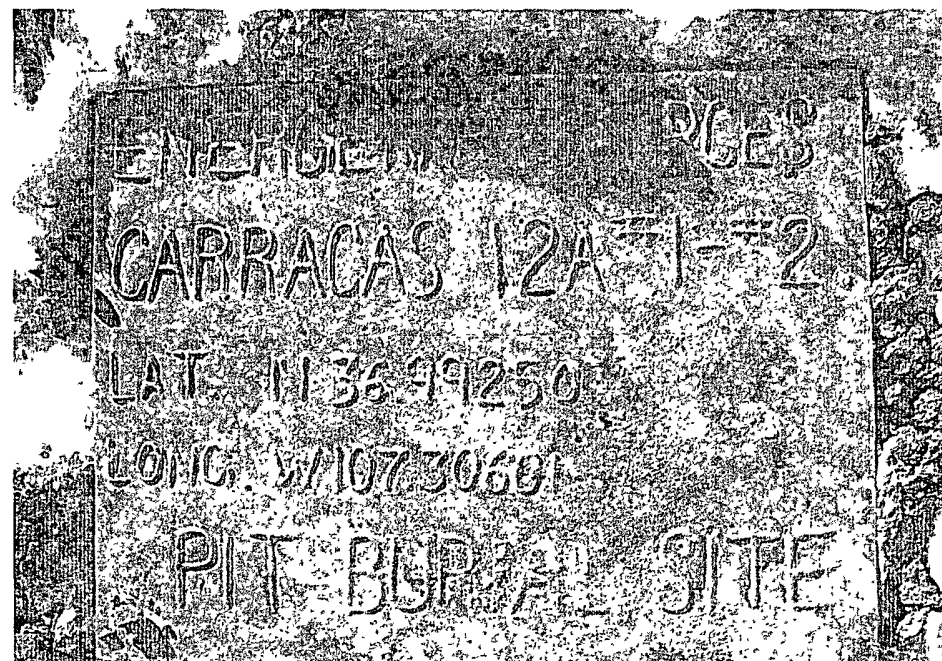 CARRACAS 12A #1-#2
LAT. N 36.99250
LONG. W 107.30681
PIT BURIAL SITE